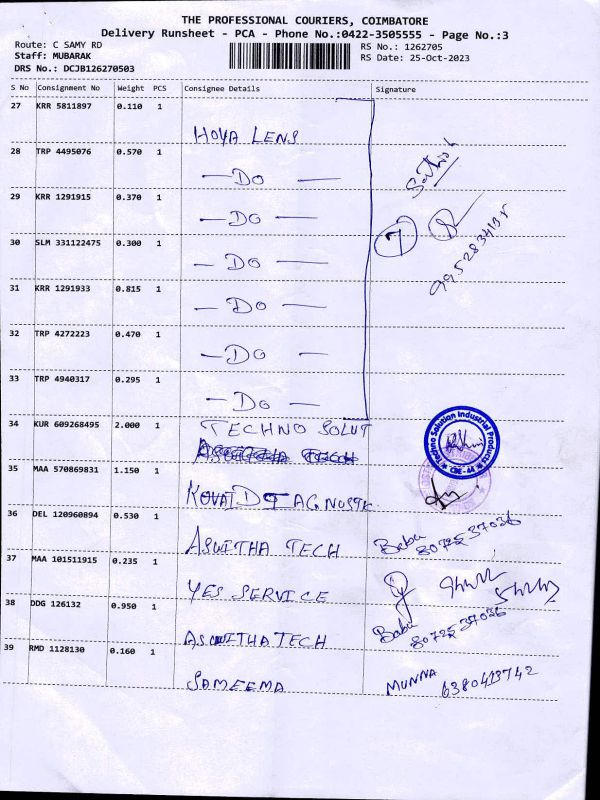 THE PROFESSIONAL COURIERS, COIMBATORE
Delivery Runsheet - PCA - Phone No.:0422-3505555 - Page No.:3
Route: C SAMY RD
RS No.: 1262705
Staff: MUBARAK
RS Date: 25-Oct-2023
DRS No.: DCJB126270503
S No Consignment No Weight PCS Consignee Details Signature
27 KRR 5811897 0.110 1
HOYA LENS
28 TRP 4495076 0.570 1
— DO —
29 KRR 1291915 0.370 1
— DO —
7
30 SLM 331122475 0.300 1
— DO —
31 KRR 1291933 0.815 1
— DO —
32 TRP 4272223 0.470 1
— DO —
33 TRP 4940317 0.295 1
— DO —
34 KUR 609268495 2.000 1
TECHNO SOLUT
Techno Solution Industrial Products
CBE-44
35 MAA 570869831 1.150 1
KOVAI DIAGNOSTIC
36 DEL 120960894 0.530 1
ASWITHA TECH Babu
37 MAA 101511915 0.235 1
YES SERVICE
38 DDG 126132 0.950 1
ASWITHA TECH Babu
39 RMD 1128130 0.160 1
SAMEEMA MUNNA